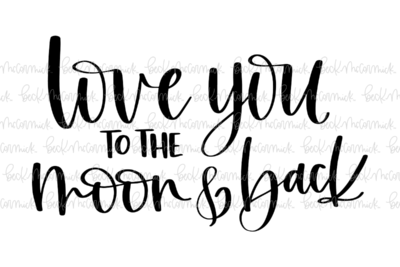 love you
TO THE
moon & back